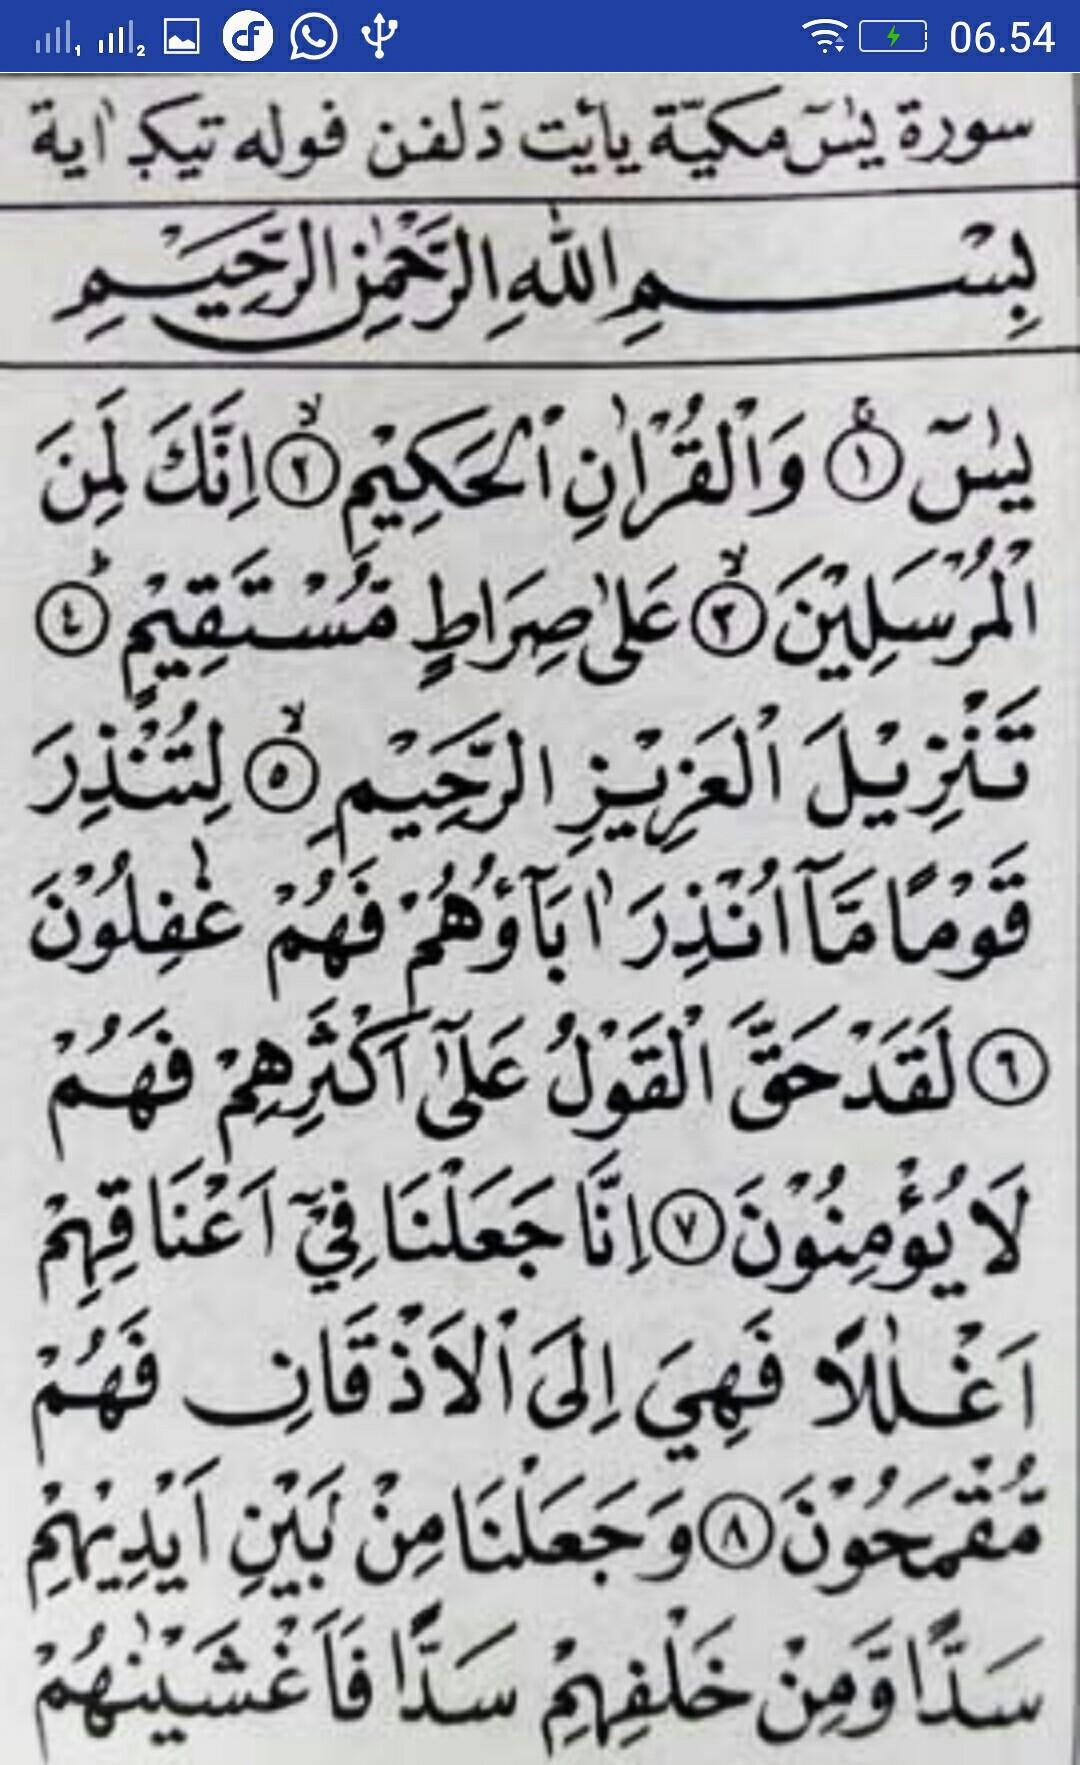 06.54
سورة يٰسۤ مكيّة يأيت دلفن فوله تيݢ اٰية
بِسْمِ اللّٰهِ الرَّحْمٰنِ الرَّحِيْمِ
يٰسۤ ۝١ وَالْقُرْاٰنِ الْحَكِيْمِ ۝٢ اِنَّكَ لَمِنَ
الْمُرْسَلِيْنَ ۝٣ عَلٰى صِرَاطٍ مُّسْتَقِيْمٍ ۝٤
تَنْزِيْلَ الْعَزِيْزِ الرَّحِيْمِ ۝٥ لِتُنْذِرَ
قَوْمًا مَّآ اُنْذِرَ اٰبَآؤُهُمْ فَهُمْ غٰفِلُوْنَ
۝٦ لَقَدْ حَقَّ الْقَوْلُ عَلٰٓى اَكْثَرِهِمْ فَهُمْ
لَا يُؤْمِنُوْنَ ۝٧ اِنَّا جَعَلْنَا فِيْٓ اَعْنَاقِهِمْ
اَغْلٰلًا فَهِيَ اِلَى الْاَذْقَانِ فَهُمْ
مُّقْمَحُوْنَ ۝٨ وَجَعَلْنَا مِنْ بَيْنِ اَيْدِيْهِمْ
سَدًّا وَّمِنْ خَلْفِهِمْ سَدًّا فَاَغْشَيْنٰهُمْ